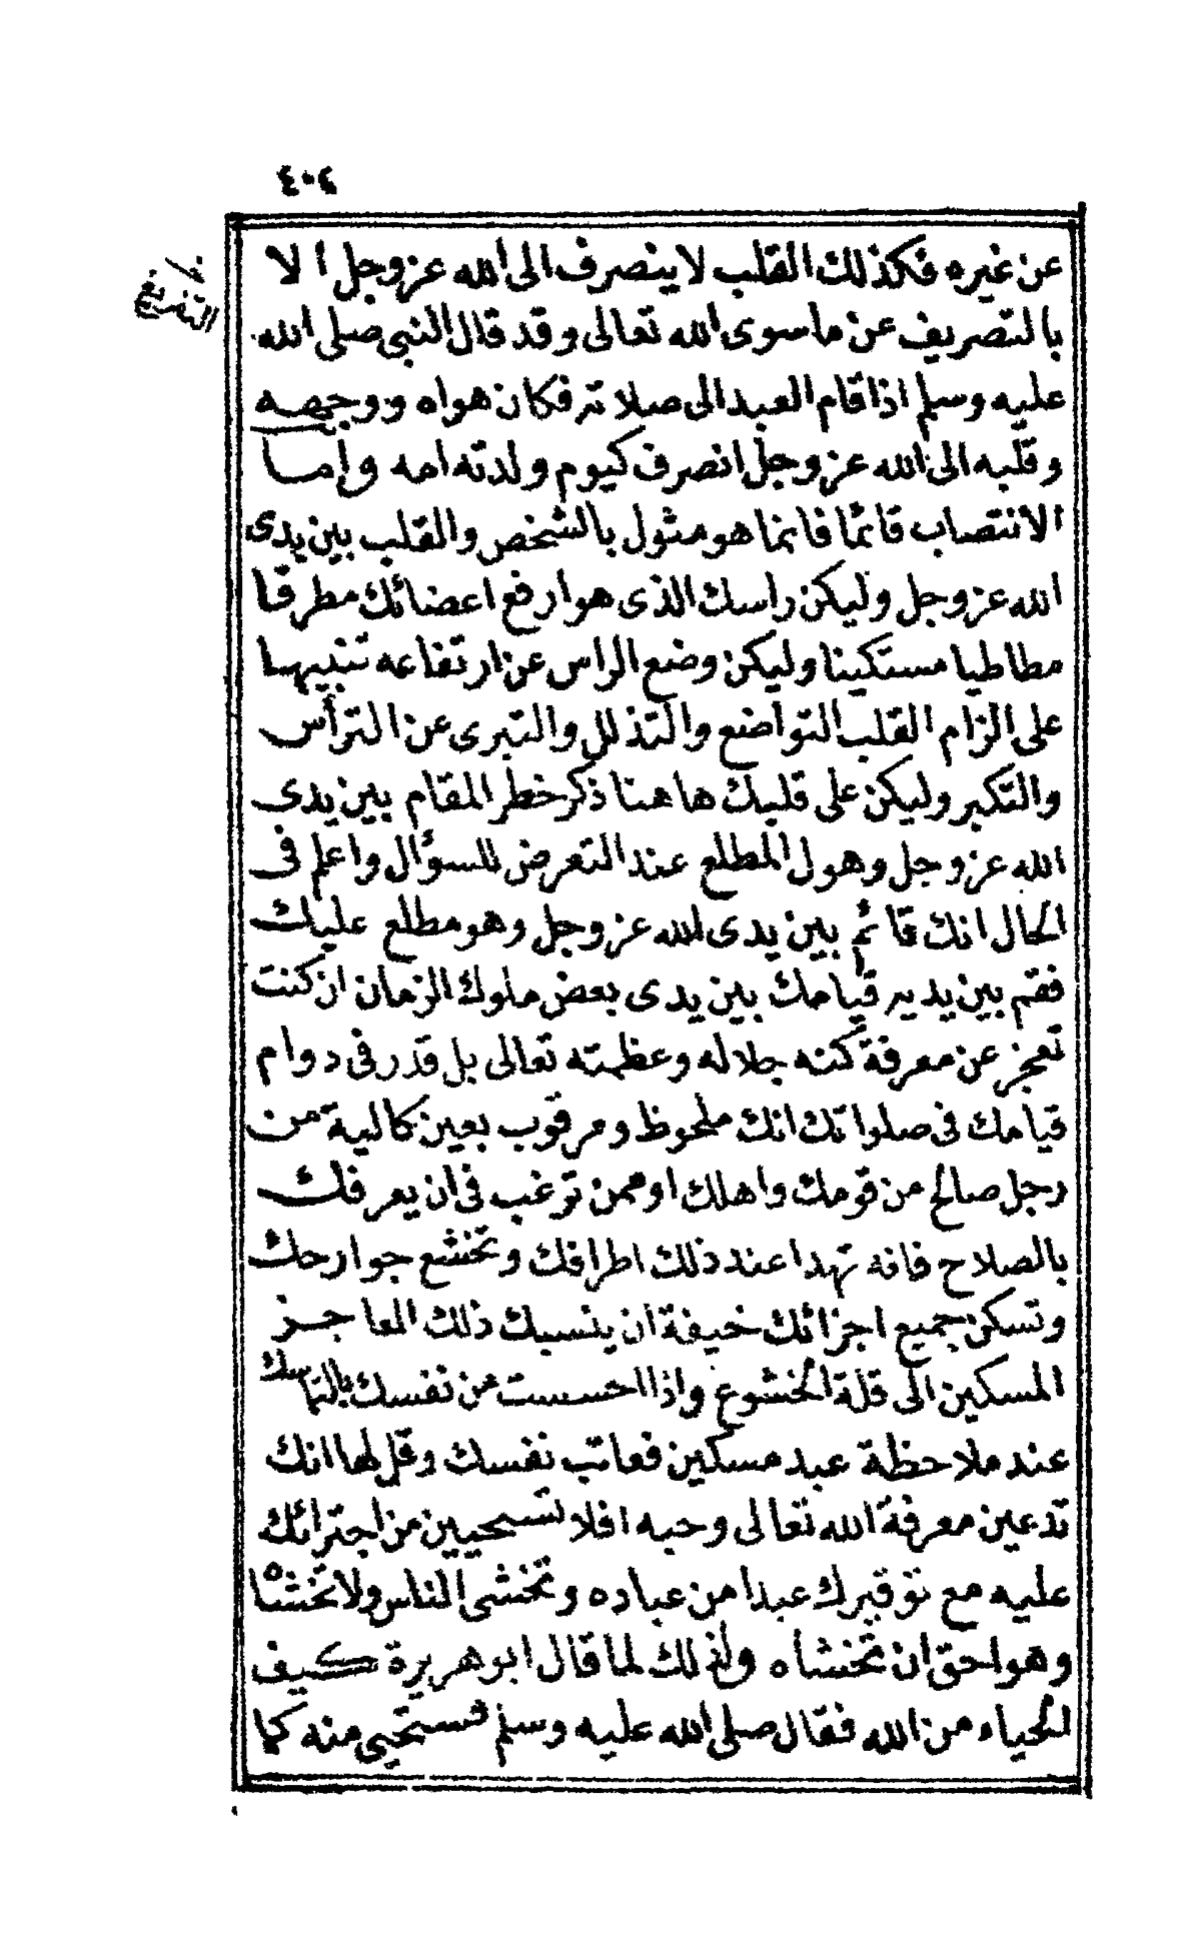 ٤٠٤
عن غيره فكذلك القلب لا ينصرف الى الله عز وجل الا
التفريغ
بالتصريف عن ما سوى الله تعالى وقد قال النبى صلى الله
عليه وسلم اذا قام العبد الى صلاته فكان هواه ووجهه
وقلبه الى الله عز وجل انصرف كيوم ولدته امه واما
الانتصاب قائما فانما هو مثول بالشخص والقلب بين يدى
الله عز وجل وليكن راسك الذى هو ارفع اعضائك مطرقا
مطاطيا مستكينا وليكن وضع الراس عن ارتفاعه تنبيها
على الزام القلب التواضع والتذلل والتبرى عن الترأس
والتكبر وليكن على قلبك هاهنا ذكر خطر المقام بين يدى
الله عز وجل وهول المطلع عند التعرض للسؤال واعلم فى
الحال انك قائم بين يدى الله عز وجل وهو مطلع عليك
فقم بين يديه قيامك بين يدى بعض ملوك الزمان ان كنت
تعجز عن معرفة كنه جلاله وعظمته تعالى بل قدر فى دوام
قيامك فى صلواتك انك ملحوظ ومرقوب بعين كالية من
رجل صالح من قومك واهلك او ممن ترغب فى ان يعرفك
بالصلاح فانه تهدا عند ذلك اطرافك وتخشع جوارحك
وتسكن جميع اجزائك خيفة ان ينسبك ذلك العاجز
المسكين الى قلة الخشوع واذا احسست من نفسك بالتماسك
عند ملاحظة عبد مسكين فعاتب نفسك وقل لها انك
تدعين معرفة الله تعالى وحبه افلا تستحيين من اجترائك
عليه مع توقيرك عبدا من عباده وتخشى الناس ولا تخشاه
وهو احق ان تخشاه ولذلك لما قال ابو هريرة كيف
الحياء من الله فقال صلى الله عليه وسلم تستحيى منه كما